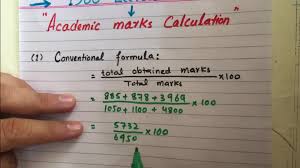 "Academic marks Calculation"
(1) Conventional formula:
= total obtained marks / Total marks × 100
= 885 + 878 + 3969 / 1050 + 1100 + 4800 × 100
= 5732 / 6950 × 100